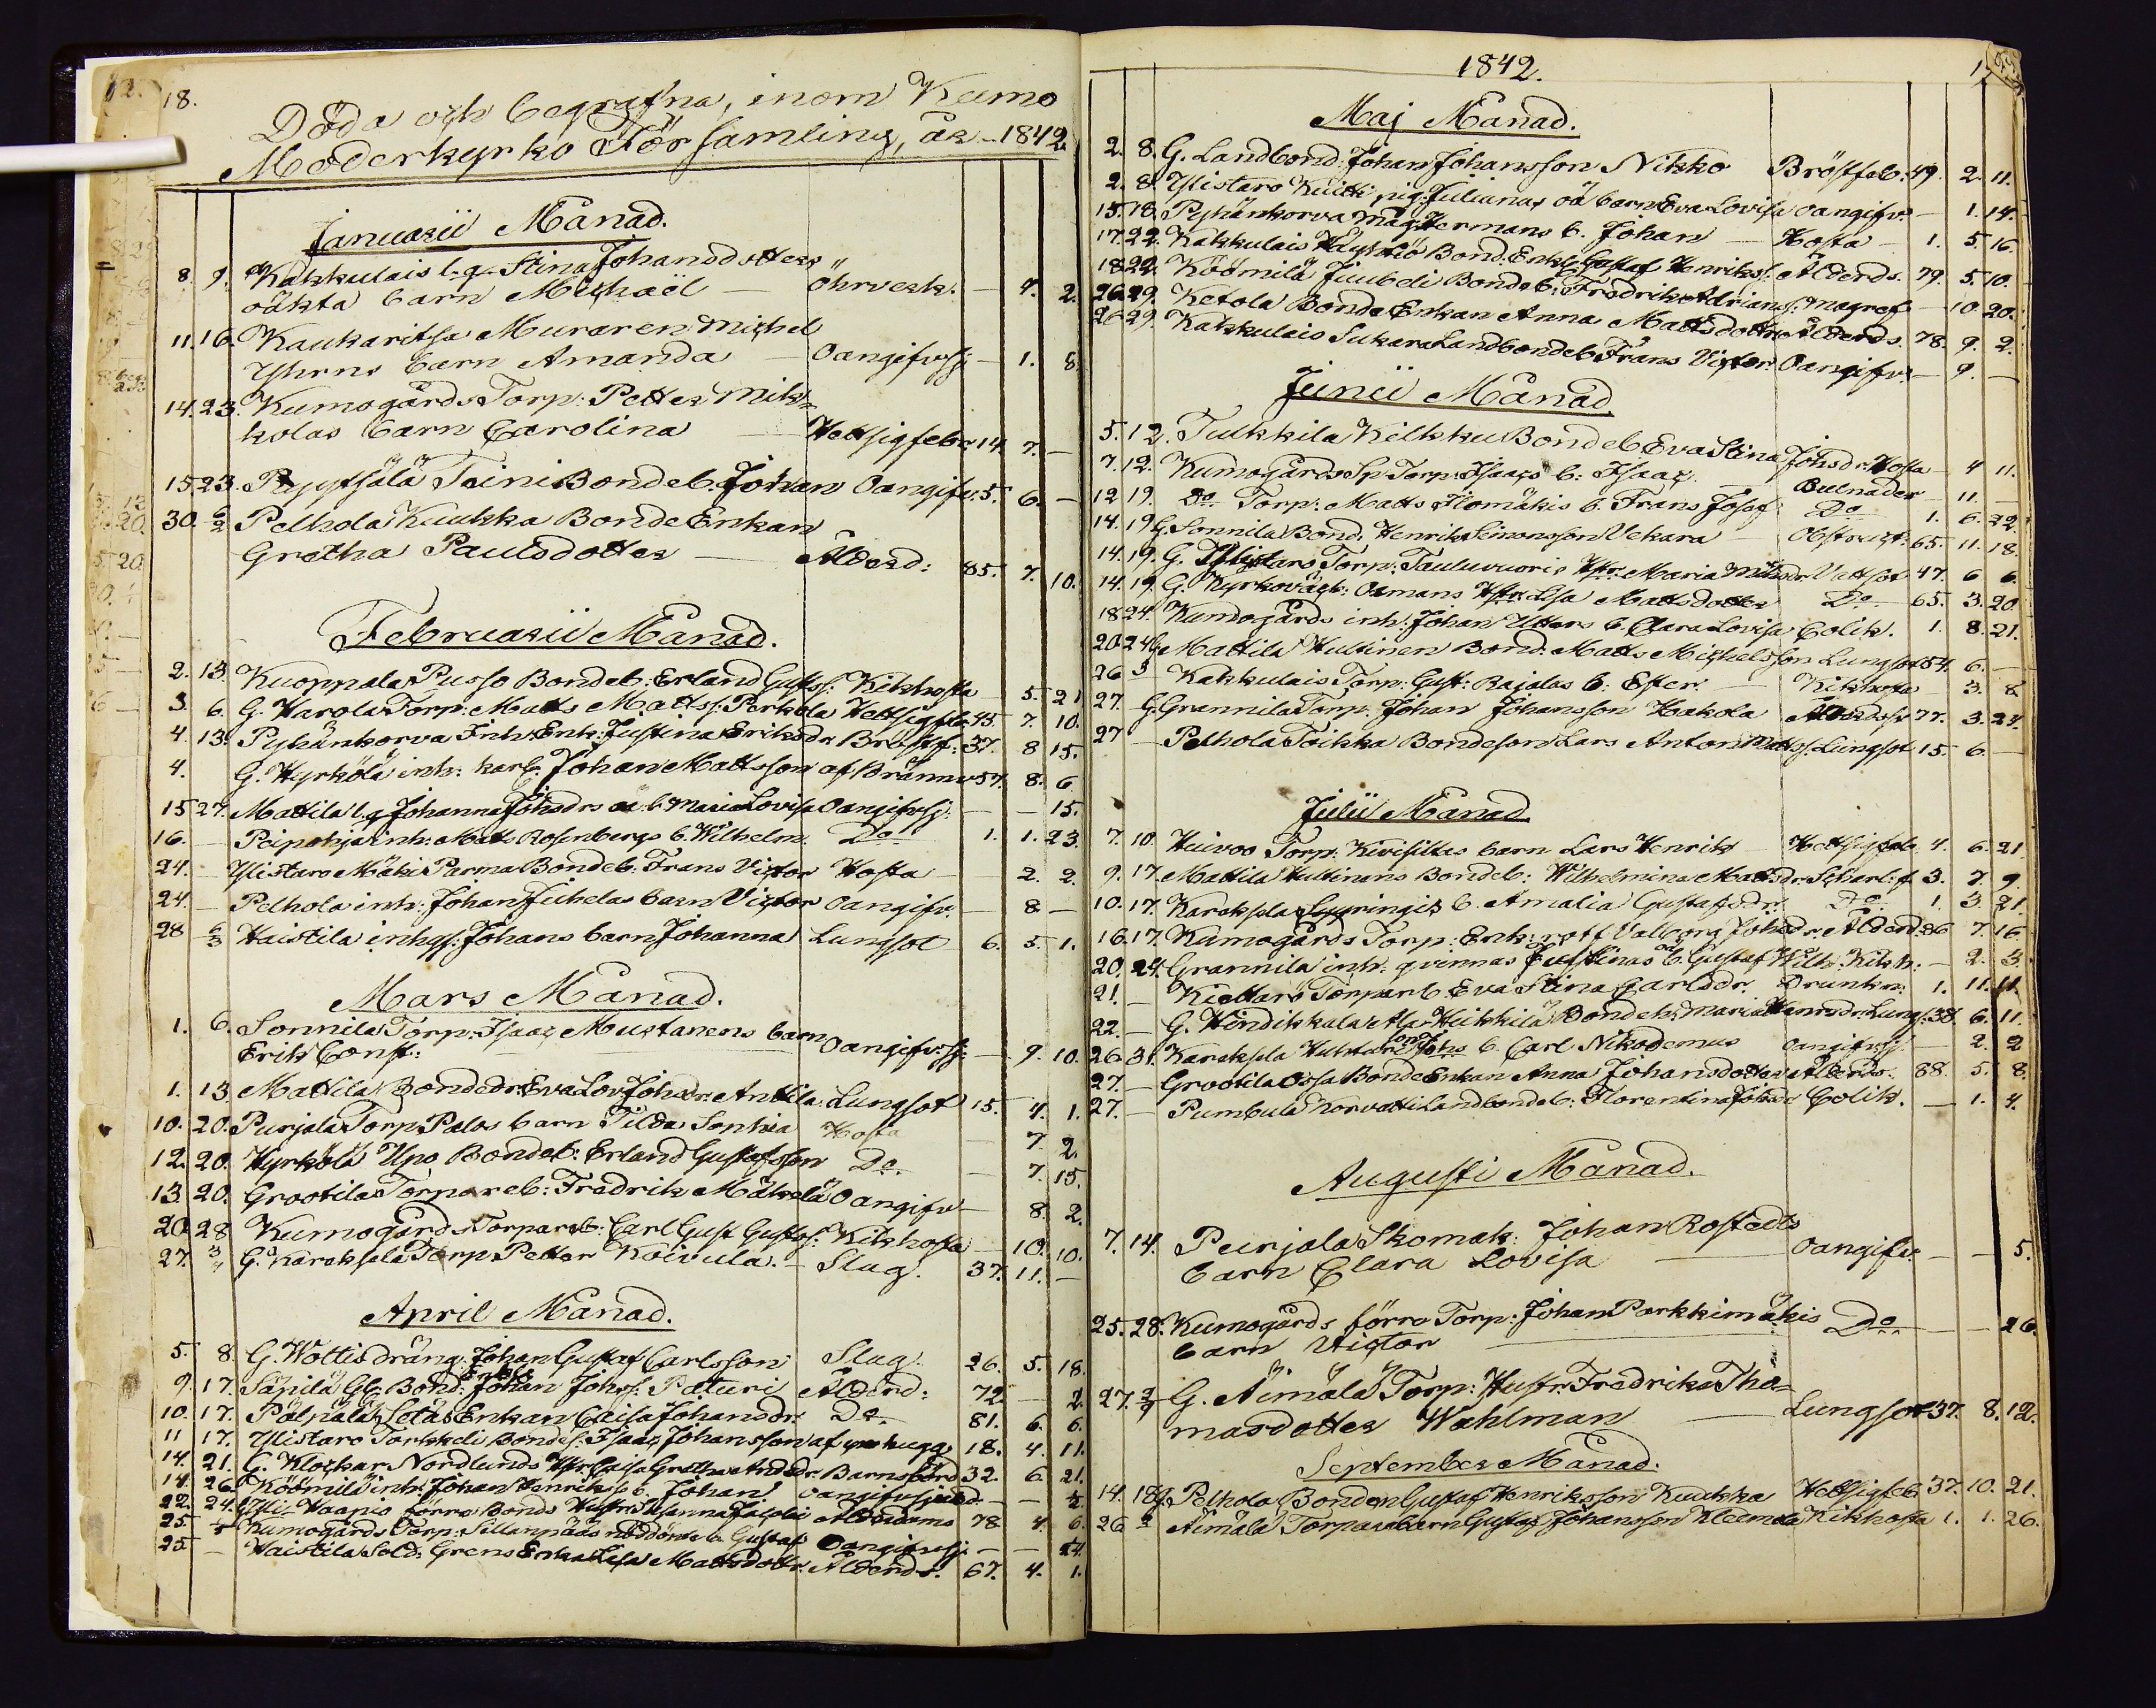 18.
Döda och begrafna, inom Kumo
Moderkyrko Församling, år 1842.
Januarii Månad.
8. 9. Kakkulais l. q. Stina Johansdotters
oäkta barn Michaël — Öhrverk. — 4. 2.
11. 16. Kaukaritsa Muraren Michel
Yhrns barn Amanda Oangifv. sj. — 1. 8.
14. 23. Kumogårds Torp: Petter Mik-
kolas barn Carolina — Hettsigfeber 14. 7. —
15. 23. Ryytsälä Teini Bonde b. Johan Oangifv. 5. 6. —
30. 6/2 Pelhola Kuukka Bonde Enkan
Gretha Paulsdotter — Ålderd: 85. 7. 10.
Februarii Månad.
2. 13. Kuoppala Pusso Bonde b: Erland Gustss: Kikhosta — 5. 21
3. 6. G. Harola Torp: Matts Mattss: Perkola Hettsigfeb. 45. 7. 10.
4. 13. Pyhänkorva Inh. Enk: Justina Eriksdr Bröstf. 37. 8 15.
4. G. Hyrkölä inh: karl. Johan Mattsson af Bränv. 57. 8. 6
15 27. Mattila l. q Johanna Johsdrs oä b. Maria Lovisa Oangifv. sj: — — 15.
16. — Peipohja inh: Matts Rosenbergs b. Wilhelm. Do 1. 1. 23.
24. — Ylistaro Mäki Parma Bonde b: Frans Victor Hosta — 2. 2.
24. — Pelhola inh: Johan Juhelas barn Victor Oangifv. — 8 —
28 6/3 Haistila inhys: Johans barn Johanna Lungsot 6. 5. 1.
Mars Månad.
1. 6. Sonnila Torp: Isaac Mustanens barn
Erik Const: Oangifv: sj: — 9. 10.
1. 13. Mattila Bondedr: Eva Lov. Johsdr: Anttila Lungsot 15. 4. 1.
10. 20. Purjala Torp. Palos barn Tilda Sophia Hosta — 7 2.
12. 20. Hyrkölä Upo Bonde b: Erland Gustafsson Do. — 7. 15.
13. 20. Grootila Torpare b: Fredrik Mäkelä Oangifv — 8. 2.
20 28 Kumogårds Torpare b: Carl Gust Gustss: Kikhosta — 10. 10.
27. 3/4 G. Karhsala Torp. Petter Koivula. — Slag. 37. 11. —
April Månad.
5. 8 G. Wottis dräng: Johan Gustaf Carlsson Slag. 26. 5. 18.
9. 17. Säpilä Gl: Bond: Enkl. Johan Johss: Paturi Ålderd: 72. — 2.
10. 17. Pälpälä Setäs Enkan Caisa Johansdr. Do. 81. 6. 6.
11 17. Ylistaro Torkkeli Bondes: Isaac Johansson af yxehugg. 18. 4. 11.
14. 21. G. Klockar Nordlunds Hr. Caisa Gretha Andsdr. Barnsbörd 32. 6. 21.
14. 26. Köömilä inh: Johan Henrikss b. Johan oangifv sjukd. — — 1/2
22. 24. Ylis Haapio förre Bonds Hustru Susanna Jacobi Ålderdoms 78 4. 6.
25 1/5 Kumogårds Torp: Sillanpääs nöddöpte b. Gustaf Oangifv sj. — — 24.
25 — Haistila Sold: Grens Enka Lisa Mattsdottr. Ålderds. 67. 4. 1.
1842.
Maj Månad.
2. 8. G. Landbond: Johan Johansson Nikko Bröstfeb: 49. 2. 11.
2. 8. Ylistaro Kuitti pig: Julianas oä barn Eva Lovisa Oangifv. — 1. 14.
15. 18. Pyhänkorva mag Hermans b. Johan — Hosta — 1. 5. 16
17. 22. Kakkulais Häyhtiö Bond. Enkl. Gustaf Henrikss: Ålderds. 79. 5. 10.
18. 22. Köömilä Juubeli Bonde b: Fredrik Adrianss: magref — 10. 20.
26. 29. Ketola Bonde Enkan Anna Mattsdotter Ålderds. 78. 9. 2.
26 29. Kakkulais Sukara Landbonde b. Frans Victor Oangifv. — 9. —
Junii Månad.
5. 12. Tulkkila Kilkku Bonde b. Eva Stina Johsdr: Hosta — 4 11.
7. 12. Kumogårds Sp. Torp: Isaacs b: Isaac. — Bulnader — 11. —
12 19. Do Torp: Matts Isomäkis b. Frans Josef Do 1. 6. 22.
14. 19. G. Sonnila Bond. Henrik Simonsson Uekara Obstruct: 65. 11. 18.
14. 19. G. Ylistaro Torp: Tauluvuoris Hr. Maria Mattsdr. Vattsot 47. 6 6.
14. 19. G. Kyrkovägt: Osmans Hr. Lisa Mattsdotter Do 65. 3. 20.
18 24. Kumogårds inh: Johan Utters b. Clara Lovisa Colik. 1. 8. 21.
20. 24. G. Mattila Hultinen Bond. Matts Michelsson Lungsot 54. 6. —
26 3/ Kakkulais Torp: Gust: Rajalas b: Ester. — Kikhosta — 3. 8
27. G. Grannila Torp. Johan Johansson Hakola Ålderdsv 77. 3. 24.
27 — Pelhola Toikka Bondeson Lars Anton Mattss. Lungsot 15 6. —
Julii Månad.
7. 10 Huivoo Torp. Kivisiltas barn Lars Henrik Hettsigfeb. 4. 6. 21.
9. 17. Mattila Hultinens Bonde b: Wilhelmina Mattsdr. Scharl: f. 3. 7. 9.
10. 17. Karhsala Lyyringis b. Amalia Gustafsdr. Do. 1. 3. 21.
16 17. Kumogårds Torp: Enk: Valborg Johsdr: Ålderd. 86 7. 16
20. 24. Grannila inh: qvinnas Justinas oä b. Gustaf Wilh: Kikh. — 2. 3.
21. — Kiettare Torpare b. Eva Stina Carlsdr. Drunkn: 1. 11. 11.
22. — G. Hindikkala Ala Heikkilä Bonde h: Maria Henrsdr. Lungs. 38. 6. 11.
26. 31. Karhsala Huhtari Johs b. Carl Nikodemus oangifv sj — 2. 2
27. — Grootila Ossa Bonde Enkan Anna Johansdotter Ålderds. 88. 5. 8.
27. — Pumbula Korvatti Landbonde b: Florentina Johsdr Colik. — 1. 4.
Augusti Månad.
7. 14. Purjala Skomak: Johan Rostedts
barn Clara Lovisa — Oangifv. — — 5.
25. 28. Kumogårds förra Torp: Johan Parkkimäkis
barn Victor — Do — — 26.
27. 2/9 G. Äimälä Torp: Hustr: Fredrika Tho-
masdotter Wahlman — Lungsot 37. 8. 12.
September Månad.
14. 18. G. Pelhola Bonden Gustaf Henriksson Kuukka Hettsigfeb. 37. 10. 21.
26 2/ Äimälä Torpare barn Gustaf Johansson Kleemola Kikhosta 1. 1. 26.